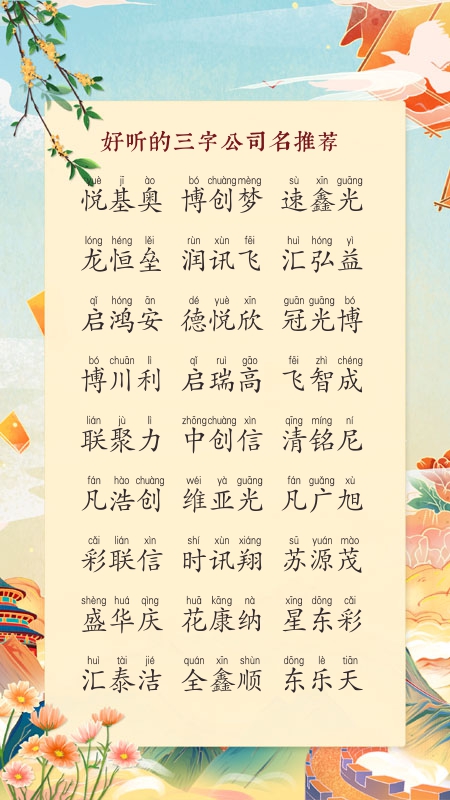 好听的三字公司名推荐
yuè jī ào bó chuàng mèng sù xīn guāng
悦基奥 博创梦 速鑫光
lóng héng lěi rùn xùn fēi huì hóng yì
龙恒垒 润讯飞 汇弘益
qǐ hóng ān dé yuè xīn guān guāng bó
启鸿安 德悦欣 冠光博
bó chuān lì qǐ ruì gāo fēi zhì chéng
博川利 启瑞高 飞智成
lián jù lì zhōng chuàng xìn qīng míng ní
联聚力 中创信 清铭尼
fán hào chuàng wéi yà guāng fán guǎng xù
凡浩创 维亚光 凡广旭
cǎi lián xìn shí xùn xiáng sū yuán mào
彩联信 时讯翔 苏源茂
shèng huá qìng huā kāng nà xīng dōng cǎi
盛华庆 花康纳 星东彩
huì tài jié quán xīn shùn dōng lè tiān
汇泰洁 全鑫顺 东乐天